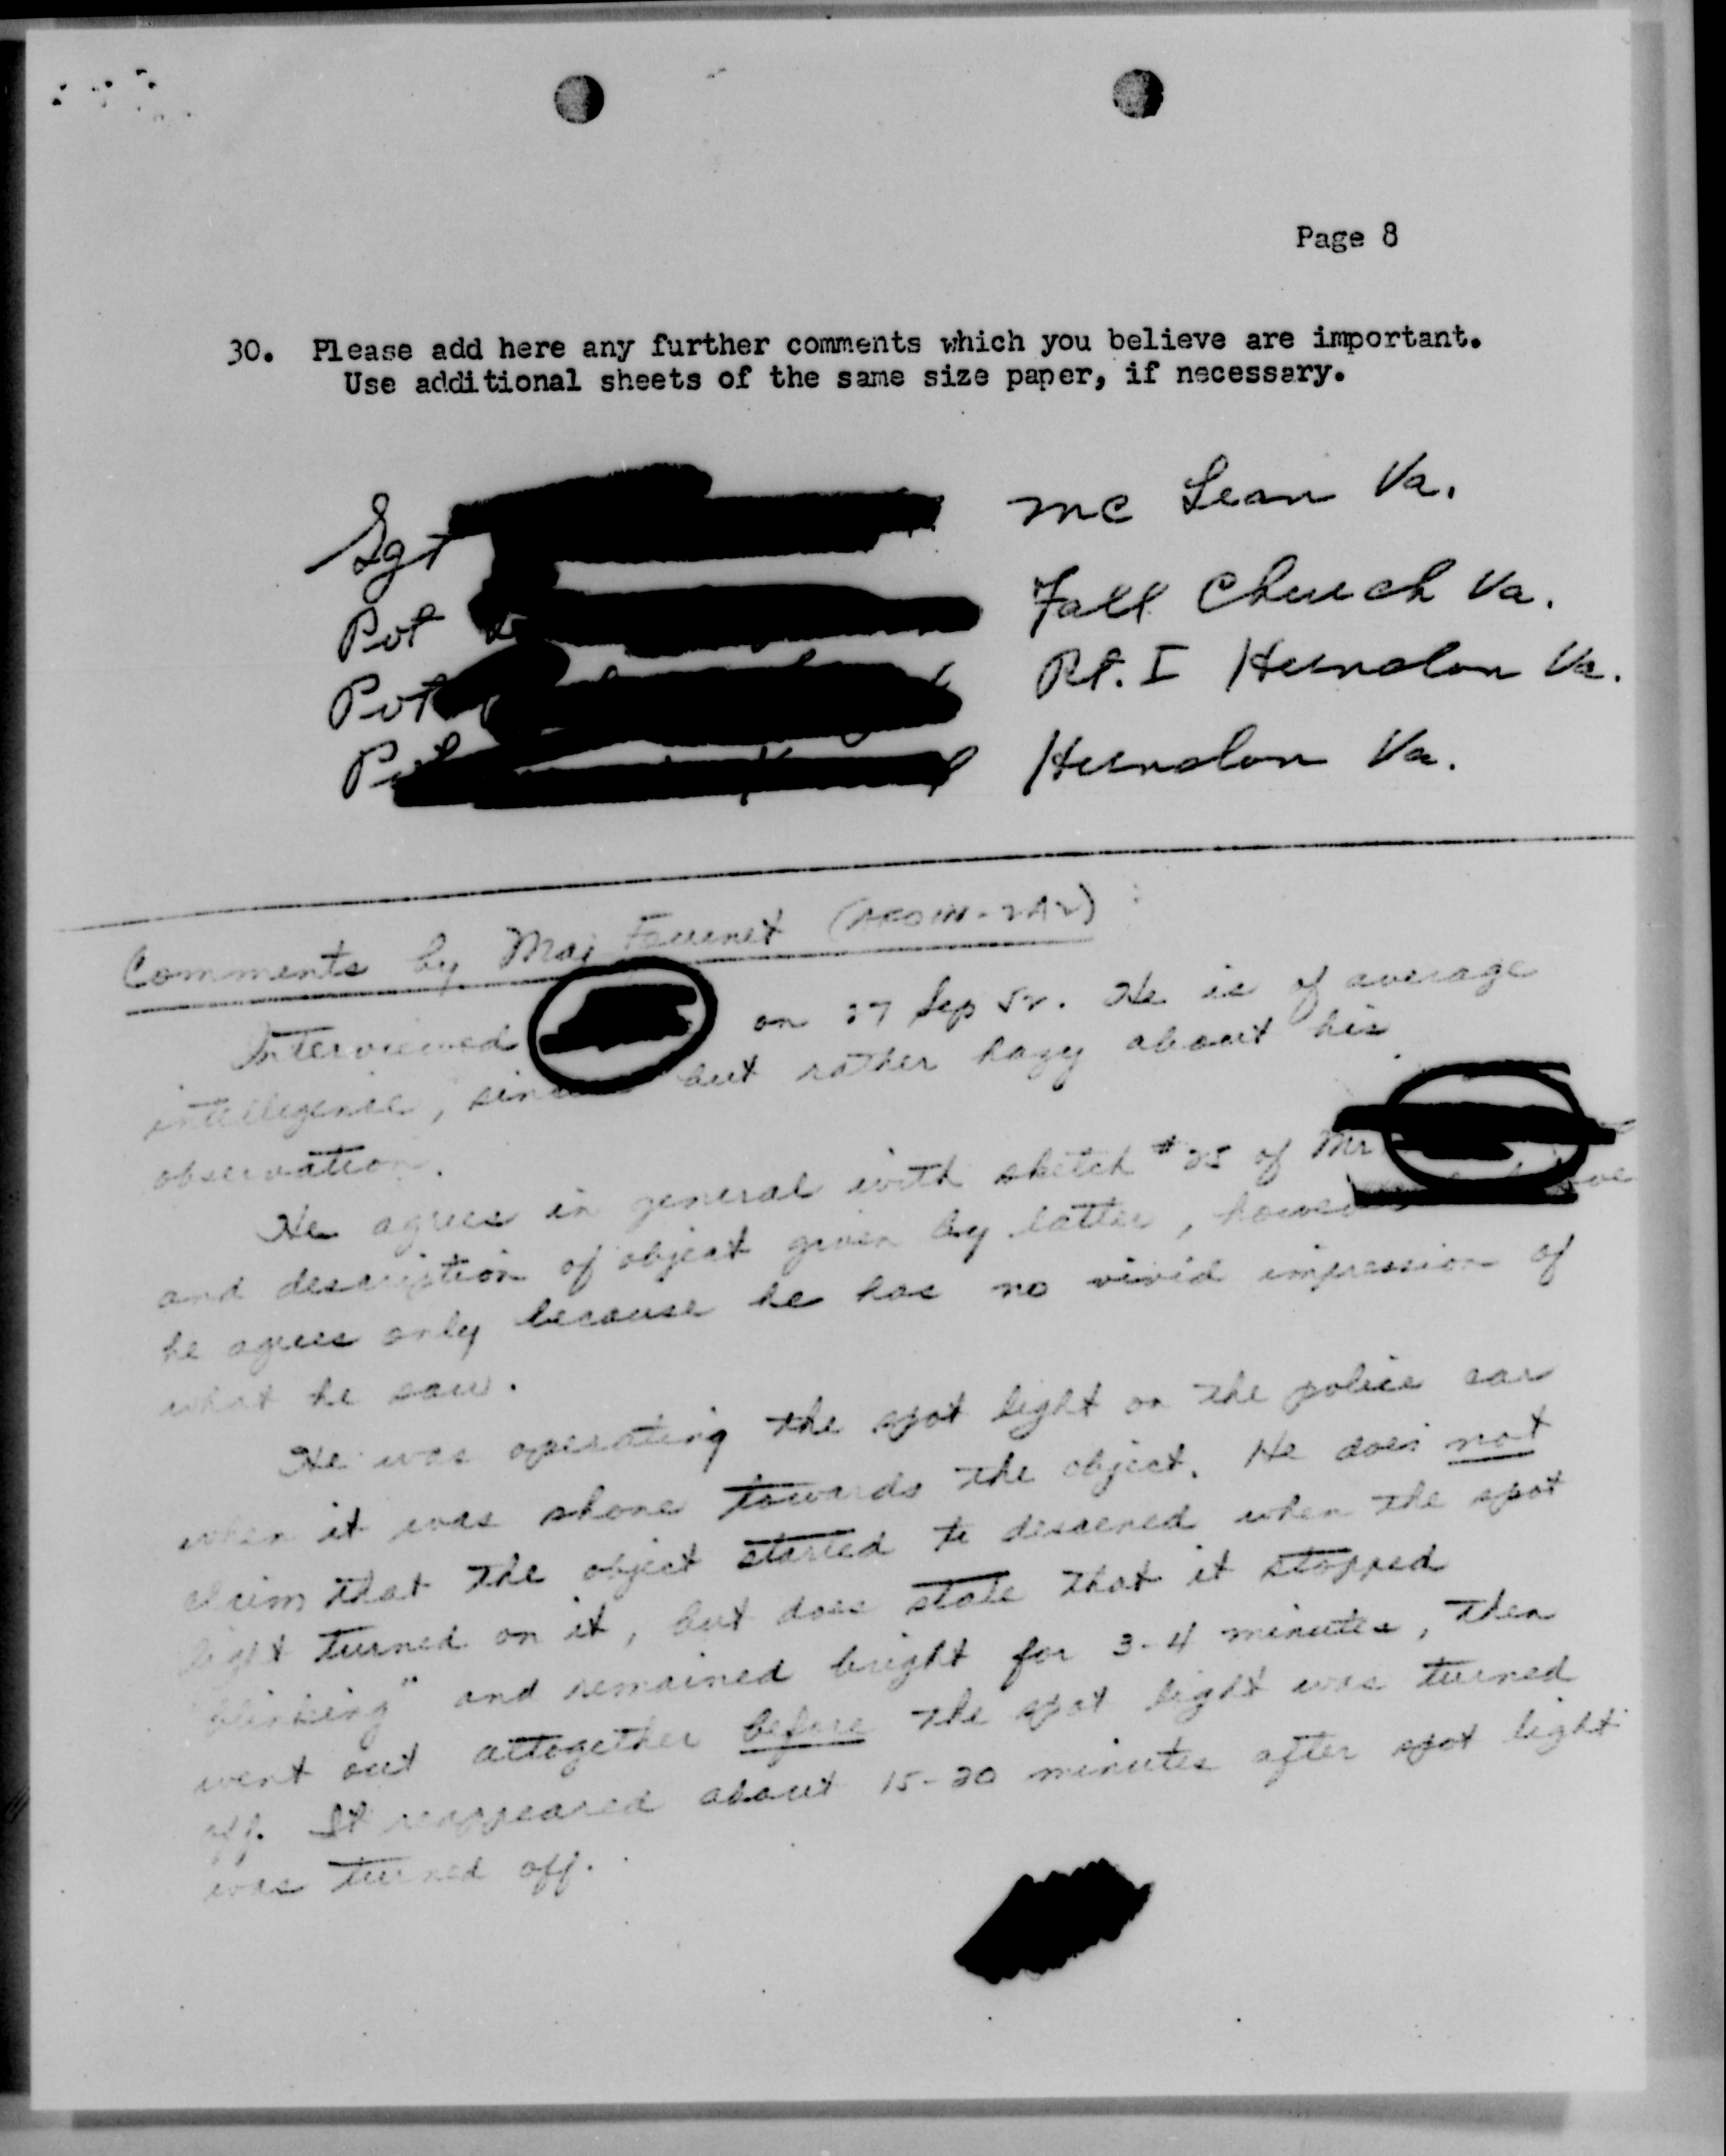 Page 8
30. Please add here any further comments which you believe are important.
Use additional sheets of the same size paper, if necessary.
Sgt Mc Lean Va.
Pvt Fall Church Va.
Pvt Rt. I Herndon Va.
Pvt Herndon Va.
Comments by Maj Fournet :
Interviewed on 27 Sep 52. He is of average
intelligence, but rather hazy about his
observation.
He agrees in general with sketch #25 of Mr
and description of object given by latter,
he agrees only because he has no vivid impression of
what he saw.
He was operating the spot light on the police car
when it was shone towards the object. He does not
claim that the object started to descened when the spot
light turned on it, but does state that it stopped
"blinking" and remained bright for 3-4 minutes, then
went out altogether before the spot light was turned
off. It reappeared about 15-20 minutes after spot light
was turned off.